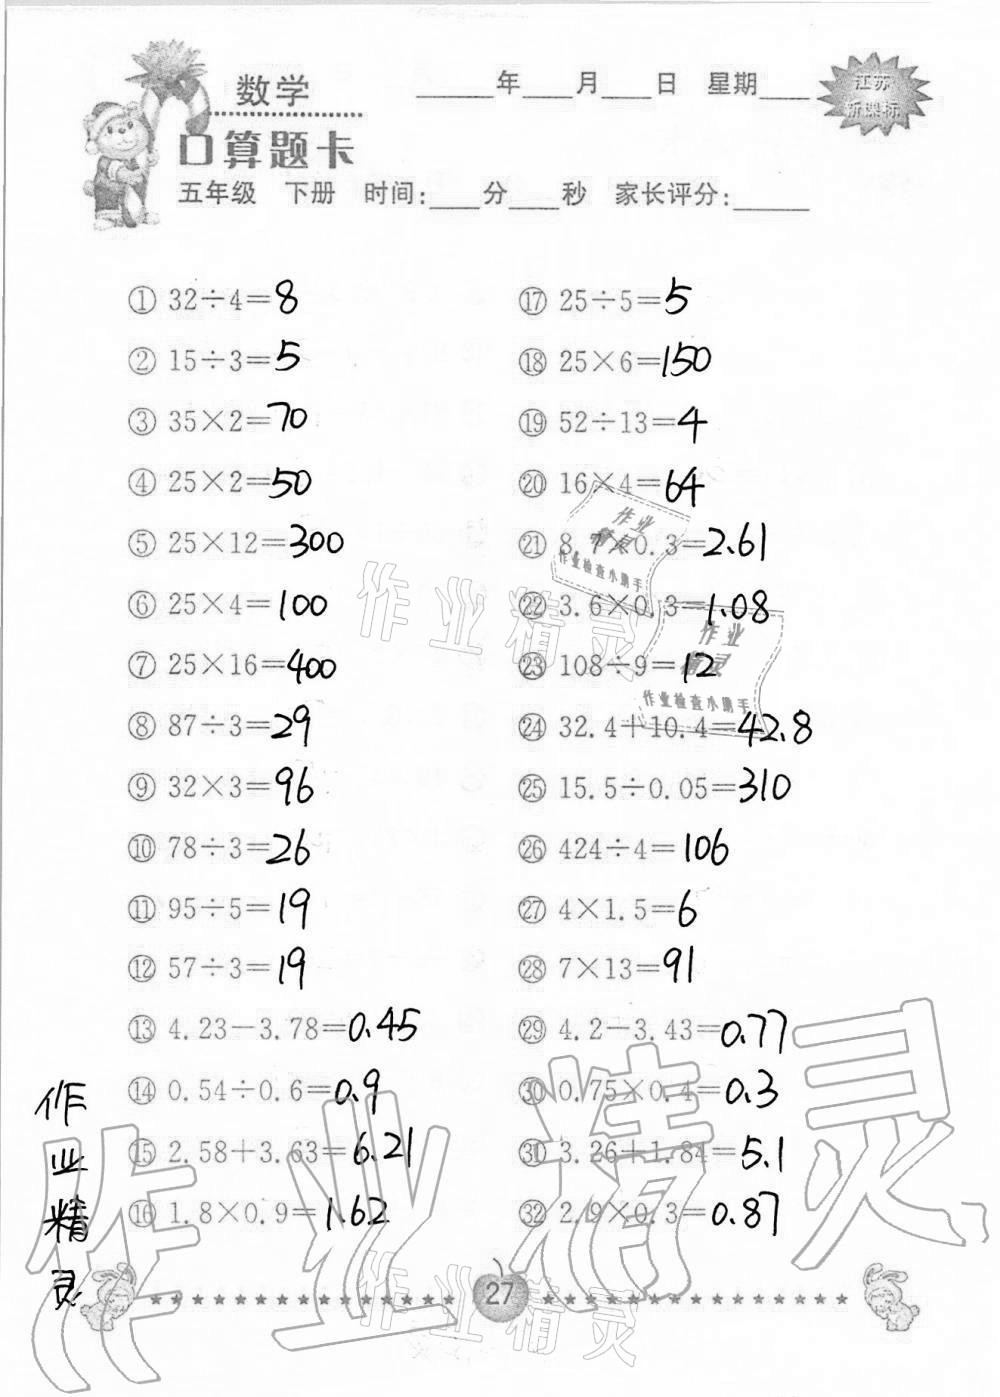 数学
____年____月____日 星期____
江苏
新课标
口算题卡
五年级 下册 时间:____分____秒 家长评分:______
① 32÷4=8
② 15÷3=5
③ 35×2=70
④ 25×2=50
⑤ 25×12=300
⑥ 25×4=100
⑦ 25×16=400
⑧ 87÷3=29
⑨ 32×3=96
⑩ 78÷3=26
⑪ 95÷5=19
⑫ 57÷3=19
⑬ 4.23-3.78=0.45
⑭ 0.54÷0.6=0.9
⑮ 2.58+3.63=6.21
⑯ 1.8×0.9=1.62
⑰ 25÷5=5
⑱ 25×6=150
⑲ 52÷13=4
⑳ 16×4=64
㉑ 8. 0.3=2.61
㉒ 3.6×0.3=1.08
㉓ 108÷9=12
㉔ 32.4+10.4=42.8
㉕ 15.5÷0.05=310
㉖ 424÷4=106
㉗ 4×1.5=6
㉘ 7×13=91
㉙ 4.2-3.43=0.77
㉚ 0.75×0.4=0.3
㉛ 3.26+1.84=5.1
㉜ 2.9×0.3=0.87
作业
精灵
作业检查小助手
作业
精灵
作业检查小助手
作业精灵
作业精灵
作业精灵
作业精灵
27